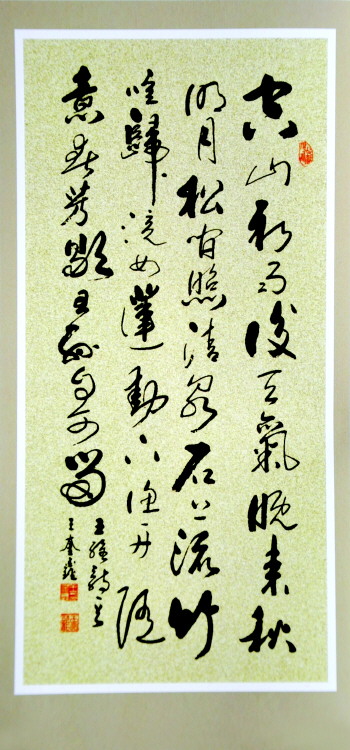 空山新雨後天氣晚來秋
明月松間照清泉石上流竹
喧歸浣女蓮動下漁舟隨
意春芳歇王孫自可留
王維詩
王